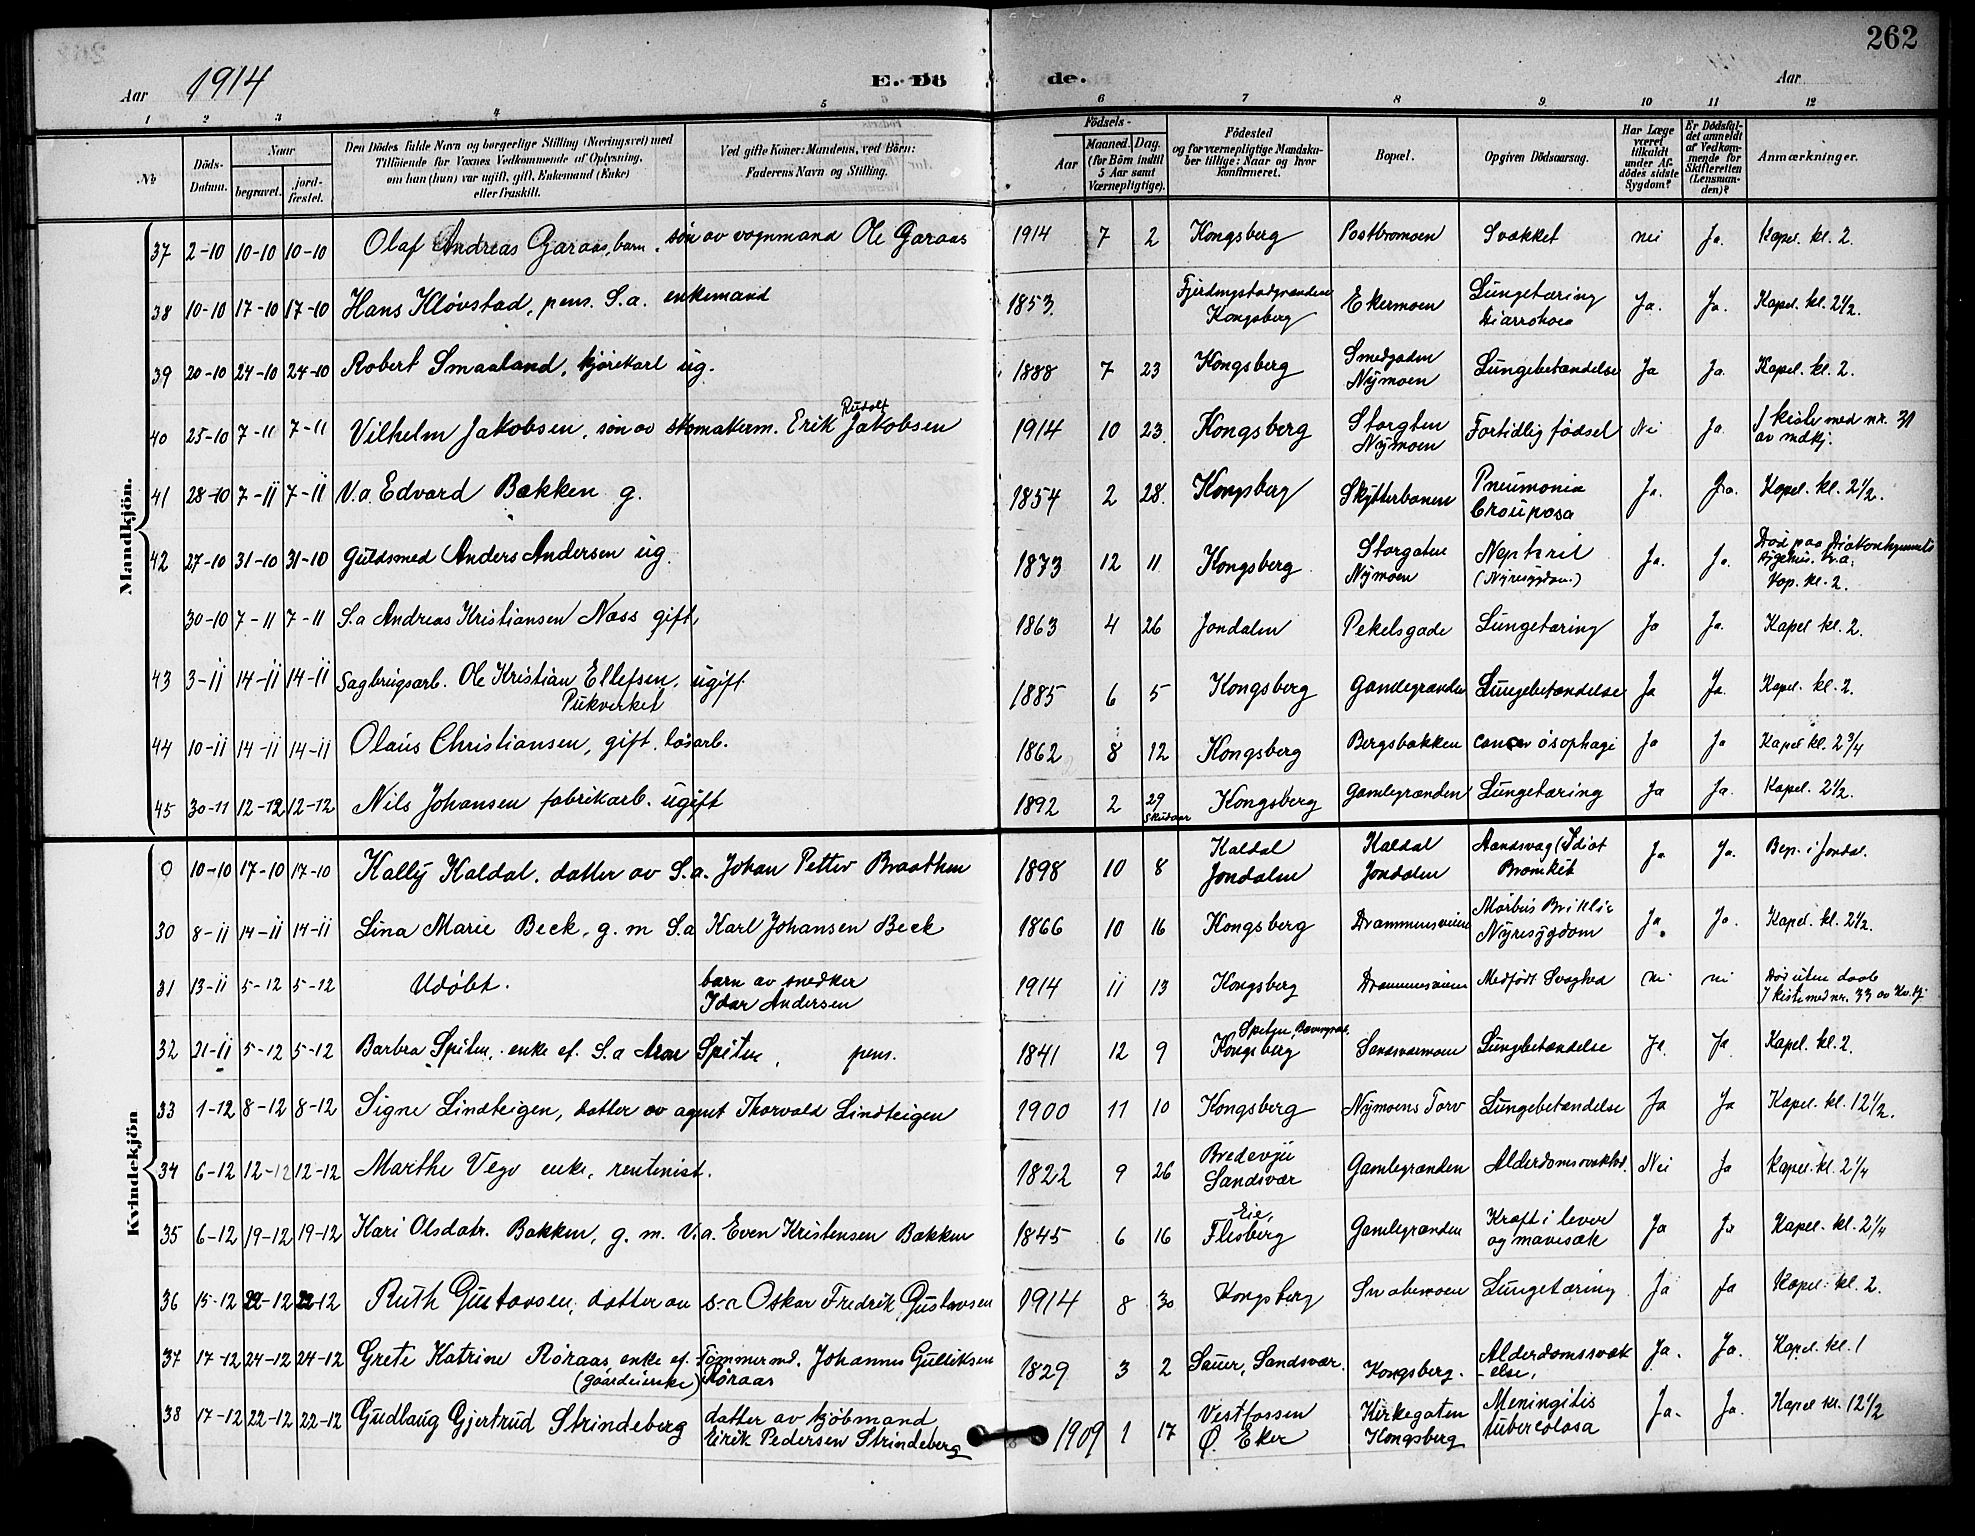 262
Aar 1914 E. Dö de. Aar
1 2 3 4 5 6 7 8 9 10 11 12
№
Döds-Datum.
Naar begravet. jord-fæstet.
Den Dödes fulde Navn og borgerlige Stilling (Næringsvei) med Tilföiende for Voxnes Vedkommende af Oplysning, om han (hun) var ugift, gift, Enkemand (Enke) eller fraskilt.
Ved gifte Koner: Mandens, ved Börn: Faderens Navn og Stilling.
Födsels- Aar Maaned. Dag. (for Börn indtil 5 Aar samt Værnepligtige).
Födested og for værnepligtige Mandskaber tillige: Naar og hvor konfirmeret.
Bopæl.
Opgiven Dödsaarsag.
Har Læge været tilkaldt under Afdödes sidste Sygdom?
Er Dödsfaldet anmeldt af Vedkommende for Skifteretten (Lensmanden)?
Anmærkninger.
Mandkjön.
37 2-10 10-10 10-10 Olaf Andreas Garaas, barn, søn av vognmand Ole Garaas 1914 7 2 Kongsberg Svækket nei Ja. Kapel. kl. 2.
38 10-10 17-10 17-10 Hans Kløvstad, pens. S.a. enkemand 1853. Kongsberg Ekermoen Lungetæring Diarrohoea Ja. Ja. Kapel. kl. 2½.
39 20-10 24-10 24-10 Robert Smaaland, kjørekarl ug. 1888 7 23 Kongsberg Smedgaden Nymoen Lungebetændelse Ja Ja. Kapel. kl. 2.
40 25-10 7-11 7-11 Vilhelm Jakobsen, søn av skomakerm. Erik Rudolf Jakobsen 1914 10 23. Kongsberg Storgten Nymoen Fortidlig fødsel Nei Ja. I kiste med nr. 31 av mdkj.
41 28-10 7-11 7-11 V.a. Edvard Bakken g. 1854 2 28. Kongsberg Skytterbanen Pneumonia Crouposa Ja. Ja. Kapel. kl. 2½.
42 27-10 31-10 31-10 Guldsmed Anders Andersen ug. 1873 12 11 Kongsberg Storgaten Nymoen Nephrit (Nyresygdom.) Ja. Ja. Død paa Diakonhjemmets sygehus. Kr.a. Kap. kl. 2.
30-10 7-11 7-11 S.a Andreas Kristiansen Næss gift, 1863 4 26 Jondalen Pekelsgade Lungetæring Ja Ja. Kapel kl. 2.
43 3-11 14-11 14-11 Sagbrugsarb. Ole Kristian Ellefsen, ugift. Pukverket 1885 6 5 Kongsberg Gamlegrænden Lungebetændelse Ja Ja. Kapel. kl. 2.
44 10-11 14-11 14-11 Olaus Christiansen, gift, løsarb. 1862 8 12 Kongsberg Bergsbakken cancer øsophagi Ja Ja Kapel kl. 2¾
45 30-11 12-12 12-12 Nils Johansen fabrikarb. ugift 1892 2 29 skudaar Kongsberg Gamlegrænden Lungetæring Ja Ja. Kapel. 2½.
Kvindekjön
0 10-10 17-10 17-10 Kally Kaldal. datter av S.a. Johan Petter Braathen 1898 10 8 Kaldal Jondalen Kaldal Jondalen Aandsvag (Idiot Bronkit Ja Ja. Beg. i Jondal.
30 8-11 14-11 14-11 Lina Marie Beck, g. m S.a Karl Johansen Beck 1866 10 16 Kongsberg Drammensveien Nyresygdom Ja. Ja. Kapel. kl. 2½.
31 13-11 5-12 5-12 Udøbt. barn av snedker Idar Andersen 1914 11 13 Kongsberg Drammensveien Medfødt Svaghed nei nei Død uten daab I kiste med nr. 33 av Kv.kj
32 21-11 5-12 5-12 Barbra Spiten, enke ef. S.a Aron Spiten, pens. 1841 12 9 Kongsberg Sandsværmoen Lungebetændelse Ja Ja Kapel. kl. 2.
33 1-12 8-12 8-12 Signe Lindteigen, datter av agent Thorvald Lindteigen 1900 11 10 Kongsberg Nymoens Torv Lungebetændelse Ja Ja Kapel. kl. 12½.
34 6-12 12-12 12-12 Marthe Vego enke, rentenist. 1822 9 26 Sandsvær Gamlegrænden Nei Ja kapel. kl. 2¼
35 6-12 19-12 19-12 Kari Olsdatr. Bakken, g. m. V.a. Even Kristensen Bakken 1845 6 16 Eie, Flesberg Gamlegrænden Kræft i lever og mavesæk Ja Ja Kapel. kl. 2¼
36 15-12 22-12 22-12 Ruth Gustavsen, datter av s-a Oskar Fredrik Gustavsen 1914 8 30 Kongsberg Snabemoen Lungetæring Ja Ja Kapel. kl. 2.
37 17-12 24-12 24-12 Grete Katrine Røraas, enke ef. Tømmermd. Johannes Gulliksen (gaardeierske) Røraas 1829 3 2 Sauer, Sandsvær. Kongsberg. Alderdomssvækkelse. Ja. Ja. Kapel. kl. 1
38 17-12 22-12 22-12 Gudlaug Gjertrud Strindeberg datter av kjøbmand Eirik Pedersen Strindeberg 1909 1 17 Vestfossen Ø. Eker Kirkegaten Kongsberg Meningitis tuberculosa Ja. Ja. Kapel kl. 12½